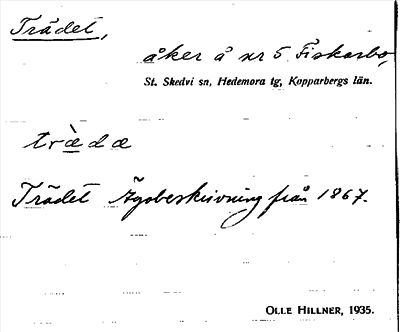 Trädet,
åker å nr 5 Fiskarbo,
St. Skedvi sn, Hedemora tg, Kopparbergs län.
træ̀dæ
Trädet Ägobeskrivning från 1867.
OLLE HILLNER, 1935.